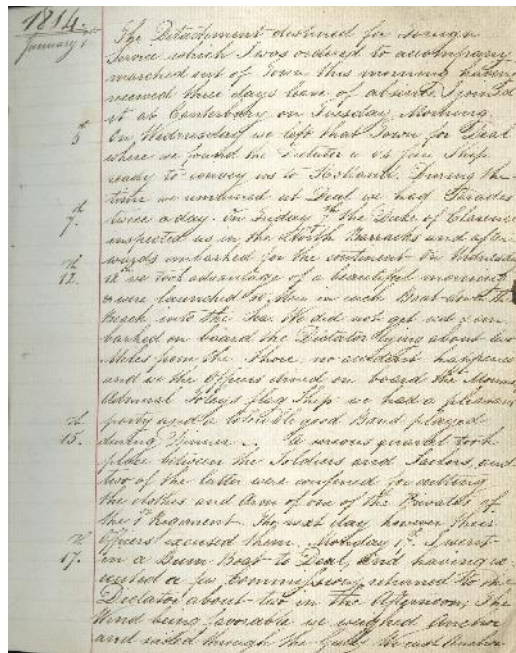 1814.
January 1st
The Detachment destined for Foreign
Service which I was ordered to accompany
marched out of Town this morning having
received three days leave of absence I joined
it at Canterbury on Tuesday Morning.
5th On Wednesday we left that Town for Deal
where we found the Dictator a 64 Gun Ship
ready to convey us to Holland. During the
time we remained at Deal we had Parades
7th twice a day. On Friday 7th the Duke of Clarence
inspected us in the North Barracks and after-
wards embarked for the continent. On Wednesday
12th 12th we took advantage of a beautiful moment
& were launched 50 Men in each Boat from the
Beach into the Sea. We did not get wet & em
barked on board the Dictator lying about two
Miles from the Shore. no accident happened
and we the Officers dined on board the Monmouth
Admiral Foley's flag Ship we had a pleasant
party and a tolerable good Band played
15th during Dinner. A serious quarrel took
place between the Soldiers and Sailors, and
two of the latter were confined for
the clothes and Arms of one of the Privates of
the 1st Regiment. The next day however their
Officers excused them. Monday 17th I went
17th in a Bum Boat to Deal, and having ex-
ecuted a few commissions, returned to the
Dictator about two in the Afternoon, The
Wind being favorable we weighed Anchor
and sailed through the Gulls. We cast Anchor